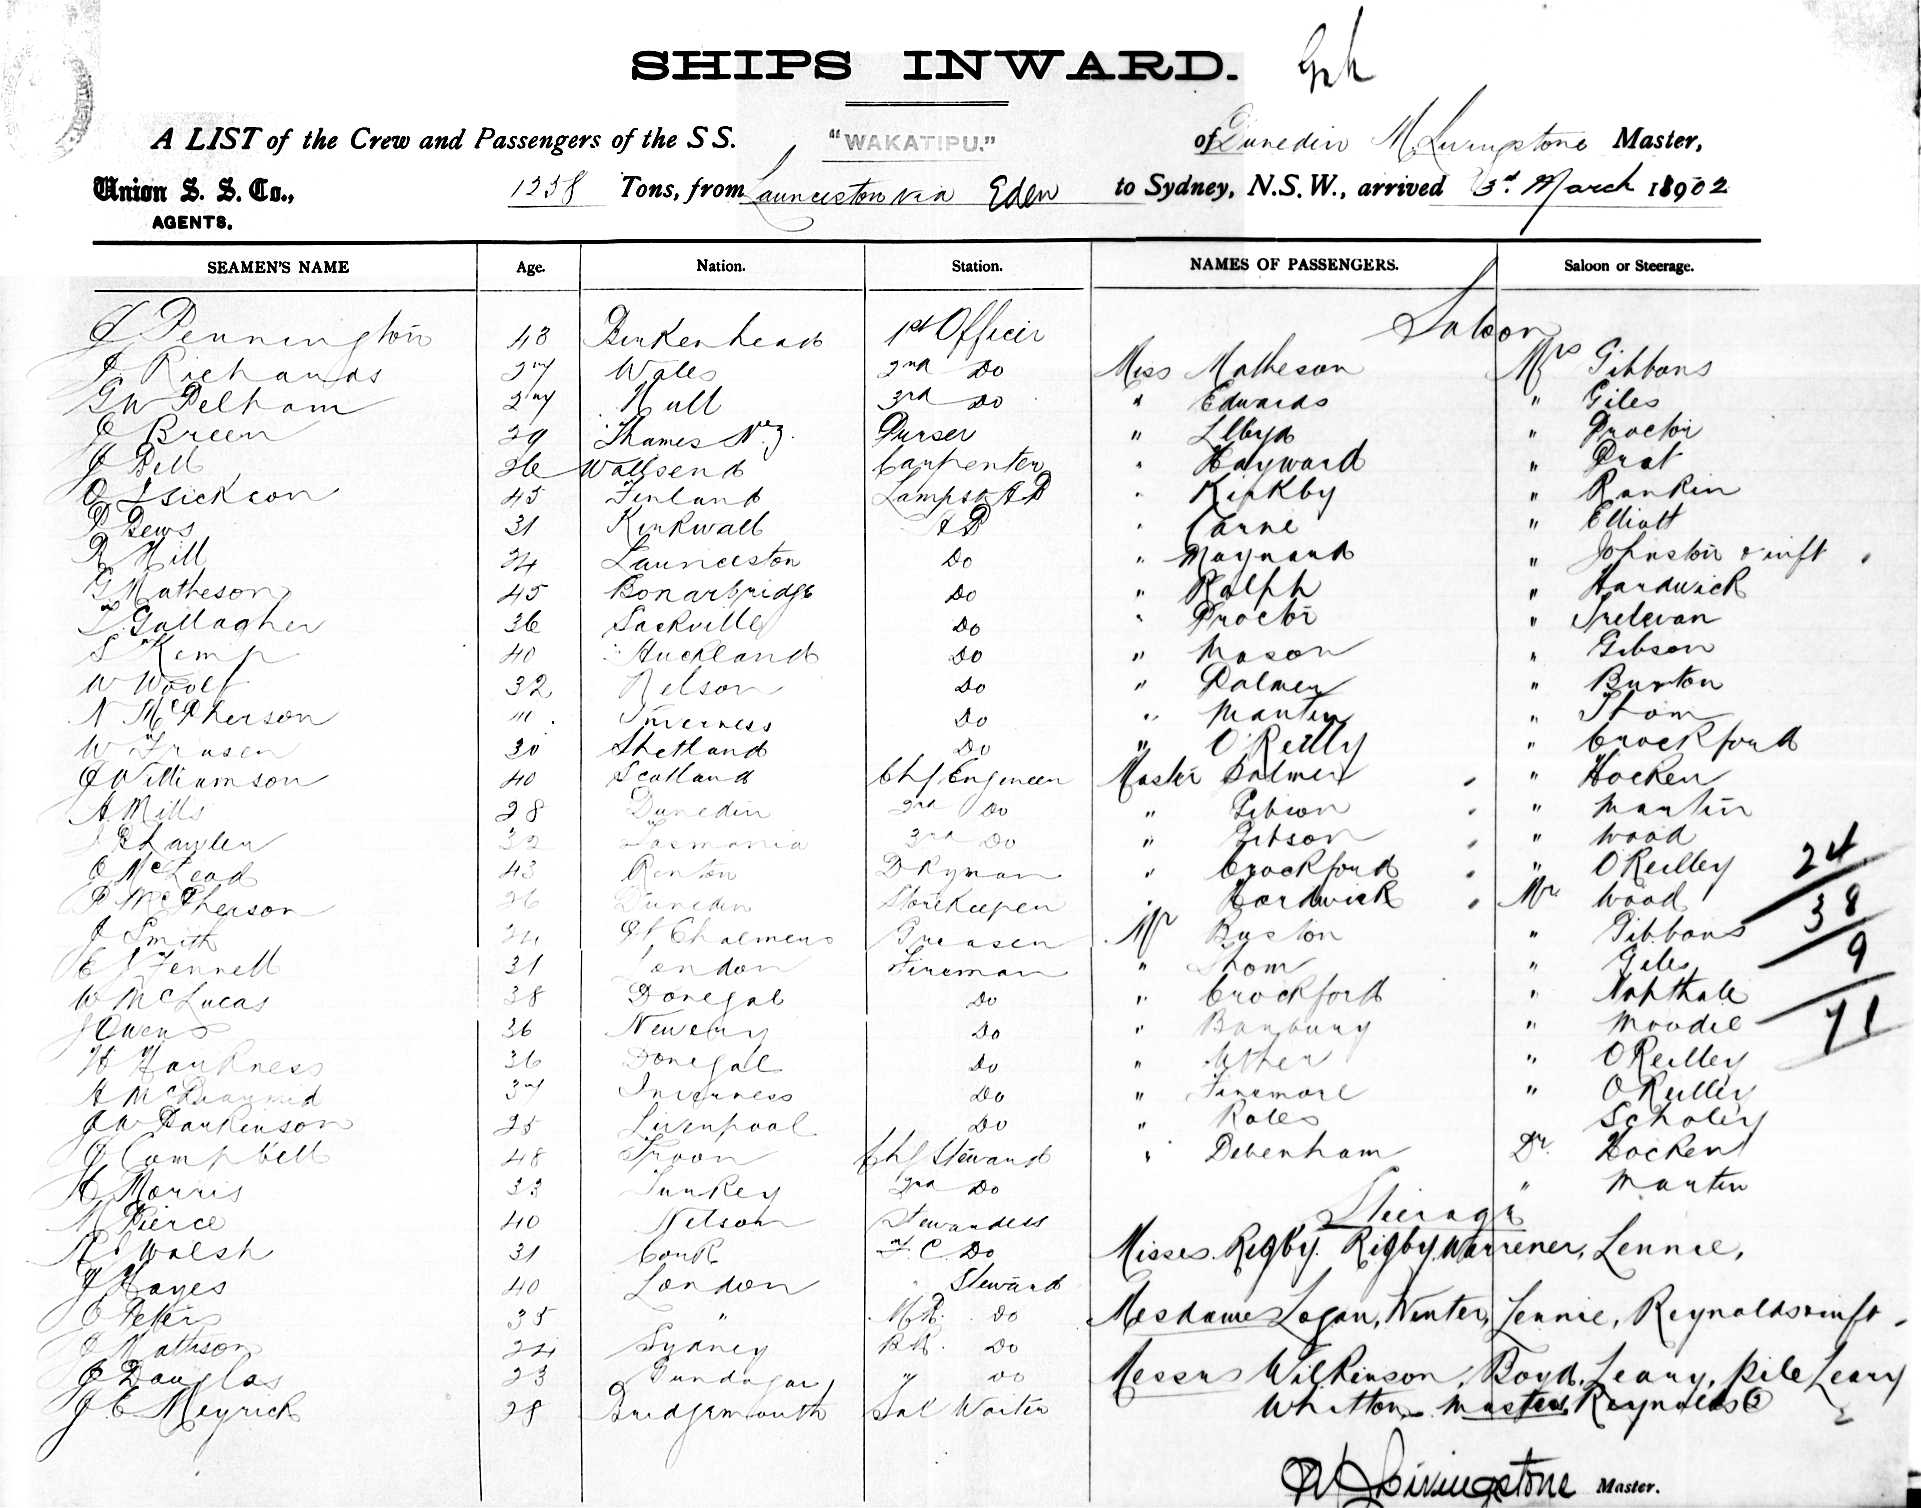 SHIPS INWARD.
A LIST of the Crew and Passengers of the S S. "WAKATIPU." of Dunedin M Livingstone Master,
Union S. S. Co., 1258 Tons, from Launceston via Eden to Sydney, N.S.W., arrived 3rd March 1902
AGENTS.
SEAMEN'S NAME Age. Nation. Station. NAMES OF PASSENGERS. Saloon or Steerage.
Saloon
Pennington 43 Birkenhead 1st Officer
J Richards 27 Wales 2nd Do Miss Matheson Mrs Gibbons
G W Pelham 27 Hull 3rd Do " Edwards " Giles
J Breen 29 Thames N.Z. Purser " Lloyd " Proctor
J Bell 36 Wallsend Carpenter " Hayward " Prat
45 Finland Lamps & A B " Kirkby " Rankin
Bews 31 Kirkwall A B " Carne " Elliott
R Hill 24 Launceston Do " Maynard " Johnston & inft
G Matheson 45 Bonarbridge Do " Ralph " Hardwick
T Gallagher 36 Sackville Do " Proctor " Trelevan
S Kemp 40 Auckland Do " Mason " Gibson
W Woolf 32 Nelson Do " Palmer " Burton
N McPherson Inverness Do " Martin " Thom
W Fraser 30 Shetland Do " O'Reilly " Crockford
J Williamson 40 Scotland Chf Engineer Master Palmer " Hocken
A Mills 28 Dunedin 2nd Do " Gibson " Martin
Lawler 32 Tasmania 3rd Do " Gibson " Wood
J McLeod 43 Renton D Kyman " Crockford " O Reilley 24
P McPherson 26 Dunedin Storekeeper " Hardwick Mr Wood 38
J Smith 24 Pt Chalmers Greaser Mr Buston " Gibbons 9
E J Fennell 31 London Fireman " Thom " Giles
W McLucas 38 Donegal Do " Crockford " Naphthali 71
J Owens 36 Newery Do " Banbury " Moodie
H Harkness 36 Donegal Do " Uther " O Reilley
A McDiarmid 37 Inverness Do " Finemore " O Reilley
J W Parkinson 25 Liverpool Do " Roles Scholey
J Campbell 48 Troon Chf Steward " Debenham Dr. Hocken
H Morris 33 Turkey 2nd Do " Martin
Steerage
M Pierce 40 Nelson Stewardess
Walsh 31 Cork F. C. Do Misses Rigby. Rigby, Warrener, Lennie,
J Hayes 40 London " Steward
Peters 35 " M.R. Do Mesdames Logan, Winter, Lennie, Reynolds & inft
J Mathison 24 Sydney B.R. Do
J Douglas 23 Dundagai " Do Messrs Wilkinson, Boyd, Leary, Pile Leary
J. E Meyrick 28 Bridgemouth Sal Waiter Whitton. Masters Reynolds (2)
M Livingstone Master.